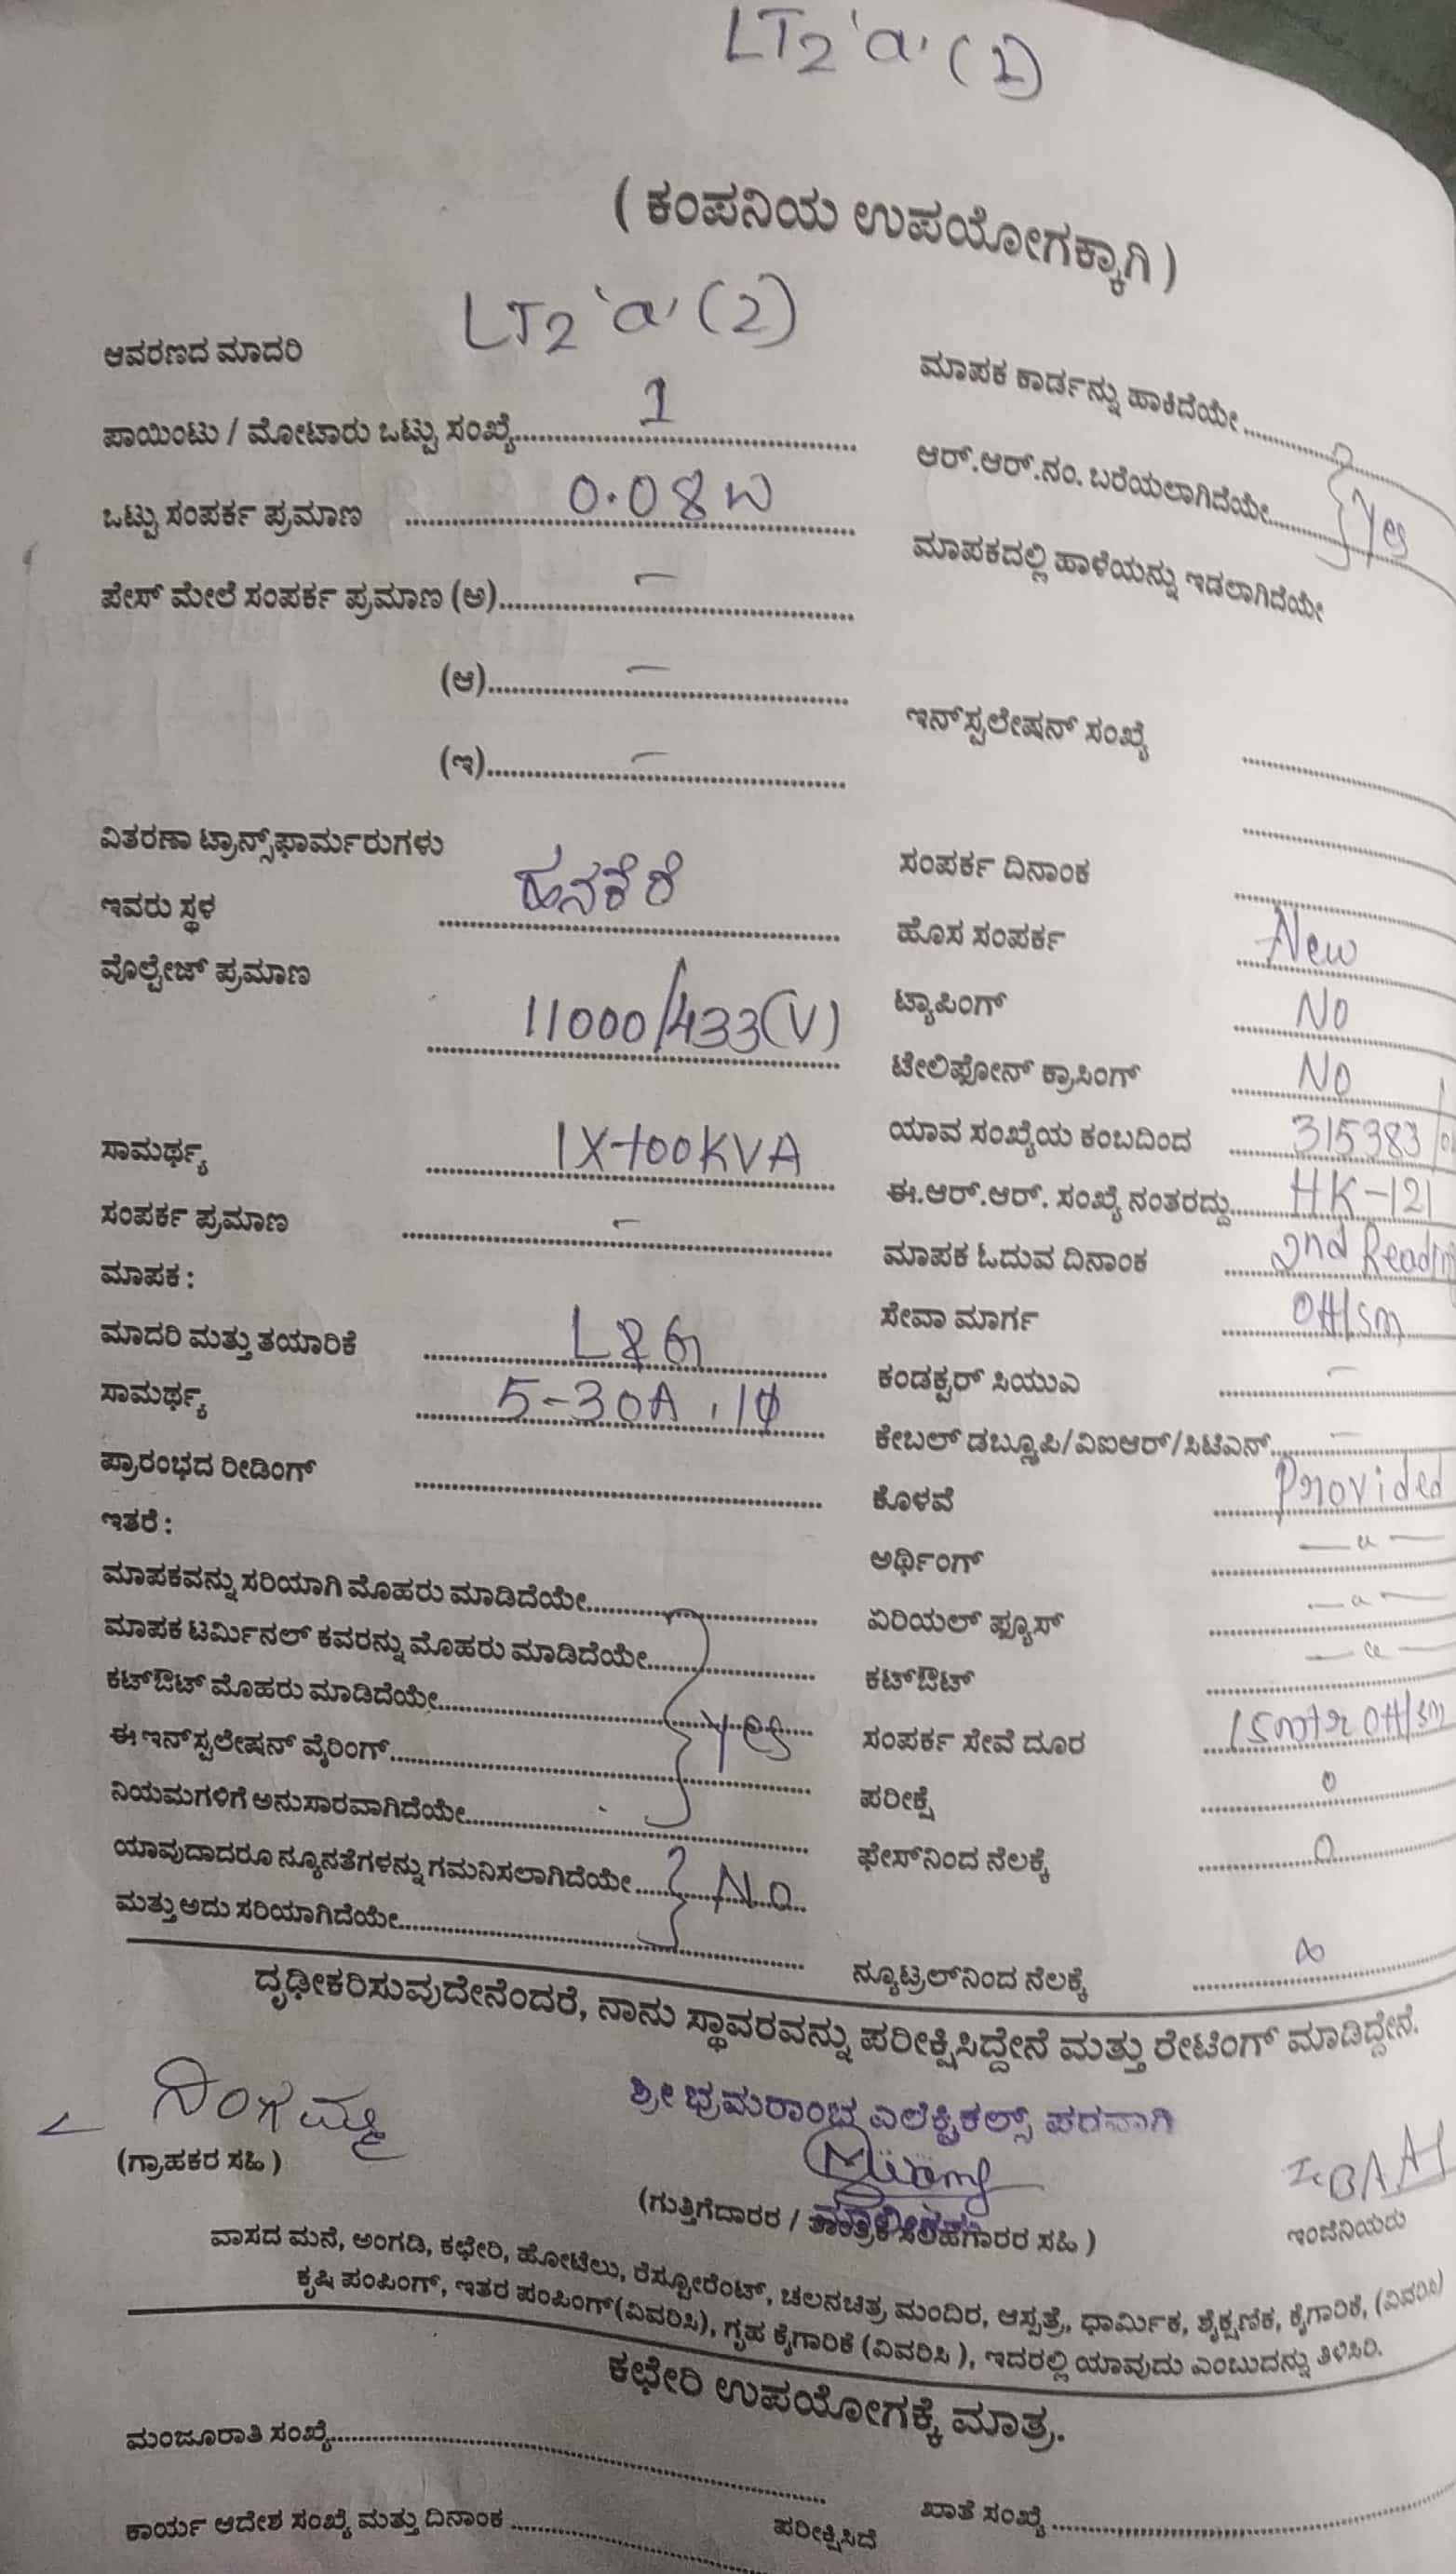 LT2 'a' (2)
( ಕಂಪನಿಯ ಉಪಯೋಗಕ್ಕಾಗಿ )
ಆವರಣದ ಮಾದರಿ LT2 'a' (2)
ಪಾಯಿಂಟು / ಮೋಟಾರು ಒಟ್ಟು ಸಂಖ್ಯೆ 1
ಒಟ್ಟು ಸಂಪರ್ಕ ಪ್ರಮಾಣ 0.08 W
ಪೇಸ್ ಮೇಲೆ ಸಂಪರ್ಕ ಪ್ರಮಾಣ (ಅ) –
(ಆ) –
(ಇ) –
ವಿತರಣಾ ಟ್ರಾನ್ಸ್‌ಫಾರ್ಮರುಗಳು
ಇವರು ಸ್ಥಳ ಹನಕೆರೆ
ವೊಲ್ಟೇಜ್ ಪ್ರಮಾಣ 11000/433(V)
ಸಾಮರ್ಥ್ಯ 1X100KVA
ಸಂಪರ್ಕ ಪ್ರಮಾಣ –
ಮಾಪಕ :
ಮಾದರಿ ಮತ್ತು ತಯಾರಿಕೆ L&G
ಸಾಮರ್ಥ್ಯ 5-30A, 1ϕ
ಪ್ರಾರಂಭದ ರೀಡಿಂಗ್
ಇತರೆ :
ಮಾಪಕವನ್ನು ಸರಿಯಾಗಿ ಮೊಹರು ಮಾಡಿದೆಯೇ
ಮಾಪಕ ಟರ್ಮಿನಲ್ ಕವರನ್ನು ಮೊಹರು ಮಾಡಿದೆಯೇ
ಕಟ್‌ಔಟ್ ಮೊಹರು ಮಾಡಿದೆಯೇ Yes
ಈ ಇನ್‌ಸ್ಟಲೇಷನ್ ವೈರಿಂಗ್
ನಿಯಮಗಳಿಗೆ ಅನುಸಾರವಾಗಿದೆಯೇ
ಯಾವುದಾದರೂ ನ್ಯೂನತೆಗಳನ್ನು ಗಮನಿಸಲಾಗಿದೆಯೇ No
ಮತ್ತು ಅದು ಸರಿಯಾಗಿದೆಯೇ
ಮಾಪಕ ಕಾರ್ಡನ್ನು ಹಾಕಿದೆಯೇ
ಆರ್.ಆರ್.ನಂ. ಬರೆಯಲಾಗಿದೆಯೇ Yes
ಮಾಪಕದಲ್ಲಿ ಹಾಳೆಯನ್ನು ಇಡಲಾಗಿದೆಯೇ
ಇನ್‌ಸ್ಟಲೇಷನ್ ಸಂಖ್ಯೆ
ಸಂಪರ್ಕ ದಿನಾಂಕ
ಹೊಸ ಸಂಪರ್ಕ New
ಟ್ಯಾಪಿಂಗ್ NO
ಟೇಲಿಫೋನ್ ಕ್ರಾಸಿಂಗ್ NO
ಯಾವ ಸಂಖ್ಯೆಯ ಕಂಬದಿಂದ 315383
ಈ.ಆರ್.ಆರ್. ಸಂಖ್ಯೆ ನಂತರದ್ದು HK-121
ಮಾಪಕ ಓದುವ ದಿನಾಂಕ 2nd
ಸೇವಾ ಮಾರ್ಗ OH/sm
ಕಂಡಕ್ಟರ್ ಸಿಯುಎ –
ಕೇಬಲ್ ಡಬ್ಲೂಪಿ/ವಿಐಆರ್/ಸಿಟಿಎನ್ –
ಕೊಳವೆ Provided
ಅರ್ಥಿಂಗ್ — 〃 —
ಏರಿಯಲ್ ಫ್ಯೂಸ್ — 〃 —
ಕಟ್‌ಔಟ್ — 〃 —
ಸಂಪರ್ಕ ಸೇವೆ ದೂರ 15mtr OH/sm
ಪರೀಕ್ಷೆ 0
ಫೇಸ್‌ನಿಂದ ನೆಲಕ್ಕೆ 0
ನ್ಯೂಟ್ರಲ್‌ನಿಂದ ನೆಲಕ್ಕೆ ∞
ದೃಢೀಕರಿಸುವುದೇನೆಂದರೆ, ನಾನು ಸ್ಥಾವರವನ್ನು ಪರೀಕ್ಷಿಸಿದ್ದೇನೆ ಮತ್ತು ರೇಟಿಂಗ್ ಮಾಡಿದ್ದೇನೆ.
ನಿಂಗಮ್ಮ
(ಗ್ರಾಹಕರ ಸಹಿ )
ಶ್ರೀ ಭ್ರಮರಾಂಭ ಎಲೆಕ್ಟ್ರಿಕಲ್ಸ್ ಪರವಾಗಿ
(ಗುತ್ತಿಗೆದಾರರ / ತಾಂತ್ರಿಕ ಸಲಹೆಗಾರರ ಸಹಿ )
ಇಂಜಿನಿಯರು
ವಾಸದ ಮನೆ, ಅಂಗಡಿ, ಕಛೇರಿ, ಹೋಟೆಲು, ರೆಸ್ಟೋರೆಂಟ್, ಚಲನಚಿತ್ರ ಮಂದಿರ, ಆಸ್ಪತ್ರೆ, ಧಾರ್ಮಿಕ, ಶೈಕ್ಷಣಿಕ, ಕೈಗಾರಿಕೆ,
ಕೃಷಿ ಪಂಪಿಂಗ್, ಇತರ ಪಂಪಿಂಗ್(ವಿವರಿಸಿ), ಗೃಹ ಕೈಗಾರಿಕೆ (ವಿವರಿಸಿ ), ಇದರಲ್ಲಿ ಯಾವುದು ಎಂಬುದನ್ನು ತಿಳಿಸಿರಿ.
ಕಛೇರಿ ಉಪಯೋಗಕ್ಕೆ ಮಾತ್ರ.
ಮಂಜೂರಾತಿ ಸಂಖ್ಯೆ
ಖಾತೆ ಸಂಖ್ಯೆ
ಕಾರ್ಯ ಆದೇಶ ಸಂಖ್ಯೆ ಮತ್ತು ದಿನಾಂಕ
ಪರೀಕ್ಷಿಸಿದೆ